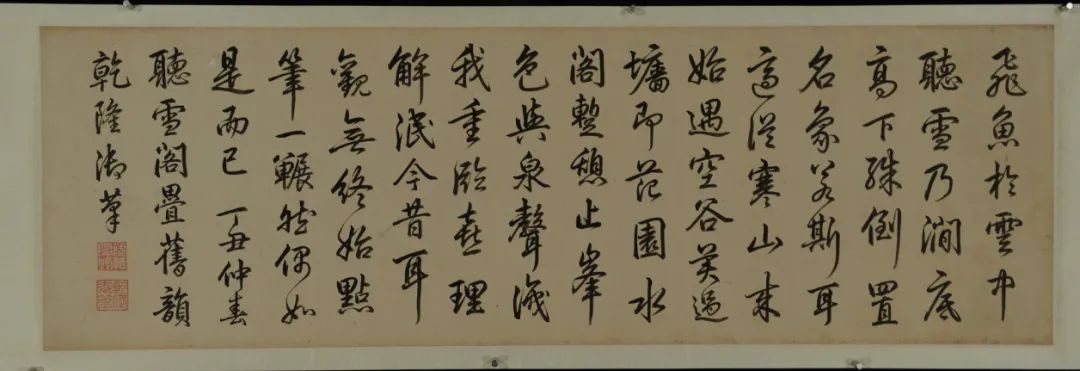 飛魚於雲中
聽雪乃澗底
高下殊倒置
名象若斯耳
適從寒山來
始遇空谷美過
墻即范園水
閣暫憩止峯
色與泉聲識
我重臨喜理
解泯今昔耳
觀無終始點
筆一囅然偶如
是而已 丁丑仲春
聽雪閣疊舊韻
乾隆御筆